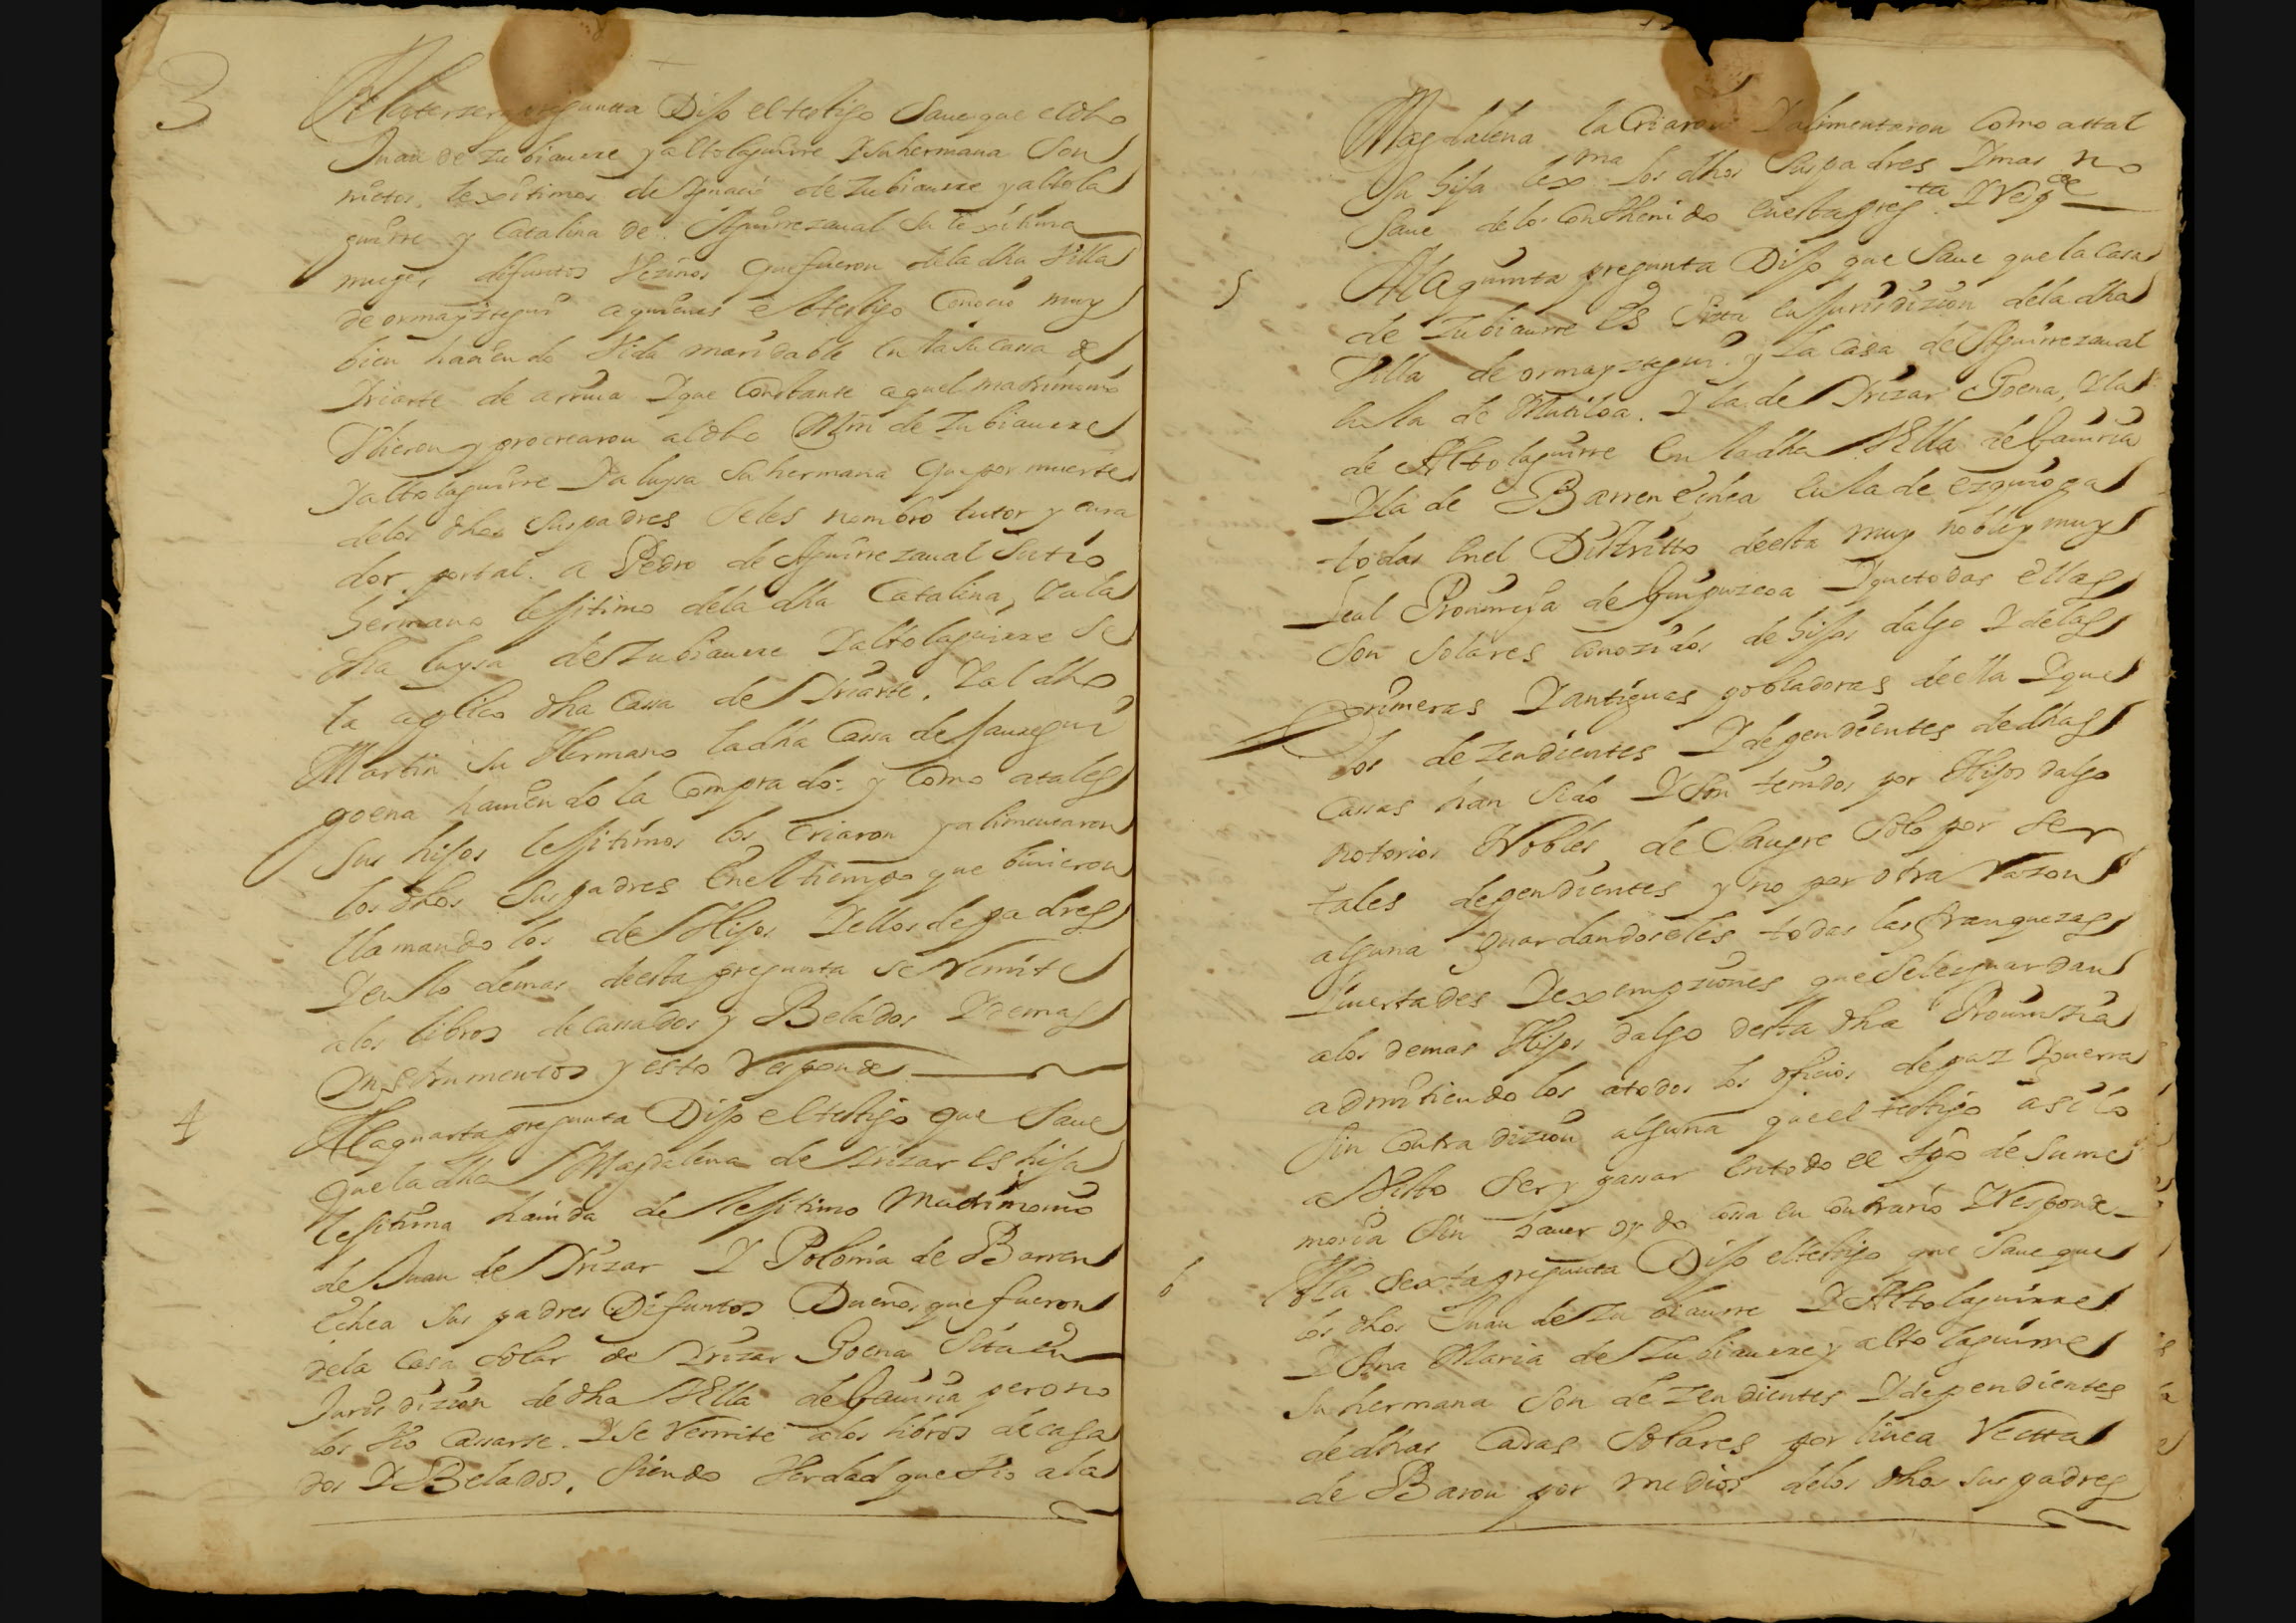 3
Ala tersera pregunta Dijo el testigo Saue que el dho
Juan de Zubiaurre y altolaguirre Y su hermana Son
nietos lexitimos de Ignacio de Zubiaurre y altola
guirre y Catalina de Aguirrezaual su lexitima
muger difuntos Vezinos que fueron de la dha Villa
de ormayztegui a quienes el testigo Conocio muy
bien haciendo Vida maridable en la su cassa de
Iriarte de arriua Y que Constante aquel matrimonio
Vbieron y procrearon al dho Mrn de Zubiaurre
Y altolaguirre Y a luysa su hermana que por muerte
de los dhos sus padres se les nombro tutor y cura
dor por tal a Pedro de Aguirrezaual su tio
hermano lejitimo de la dha Catalina, Y a la
dha luysa de Zubiaurre Y altolaguirre se
la aplico dha Cassa de Iriarte. Y al dho
Martin su Hermano la dha Cassa de Jauregui
goena hauiendola Comprado: y Como a tales
sus hijos lejitimos los Criaron y alimentaron
los dhos sus padres En el tiempo que biuieron
llamandolos de Hijos Y ellos de padres
Y en lo demas de esta pregunta se Remite
a los libros de cassados y Belados Y demas
Instrumentos y esto Responde
4
A la quarta pregunta Dijo el testigo que Saue
que la dha Magdalena de Irizar es hija
lejitima hauida de lejitimo Matrimonio
de Juan de Irizar Y Polonia de Barren
echea sus padres Difuntos Dueños que fueron
de la Casa solar de Irizar Goena Sita en
Jurisdizion de dha Villa de Gauiria pero no
los Vio Cassarse. Y se Remite a los libros de casa
dos Y Belados, siendo Verdad que Vio a la
Magdalena la Criaron Y alimentaron Como a ttal
su hija lexma los dhos sus padres Y mas no
Saue de lo Conthenido en esta pregta Y Respde
5
A la quinta pregunta Dijo que Saue que la Casa
de Zubiaurre es Sitta en Jurisdizion de la dha
Villa de ormayztegui y la Casa de Aguirrezaual
en la de Mutiloa. Y la de Irizar Goena, Y la
de Altolaguirre En la dha Villa de Gauiria
Y la de Barrenechea en la de ezquioga
todas En el Distritto de esta muy noble y muy
Leal Prouincia de Guipuzcoa Y que todas ellas
son Solares conozidos de hijos dalgo Y de las
primeras Y antiguas pobladoras de ella Y que
los dezendientes Y dependientes de dhas
Cassas han sido Y son tenidos por Hijos dalgo
notorios Nobles de Sangre solo por ser
tales dependientes y no por otra Razon
alguna guardandoseles todas las franquezas
Liuertades Y exempziones que se les guardan
a los demas Hijos dalgo desta dha Prouinzia
admitiendolos a todos los oficios de paz Y guerra
sin contradizion alguna que el testigo asi lo
a Visto ser y passar en todo el tpo de su me
moria sin hauer oydo cossa en contrario Y Responde
6
A la Sexta pregunta Dijo el testigo que Saue que
los dhos Juan de Zubiaurre Y Altolaguirre
Y Ana Maria de Zubiaurre y altolaguirre
su hermana son dezendientes Y dependientes
de dhas Casas Solares por linea Recta
de Baron por medios de los dhos sus padres